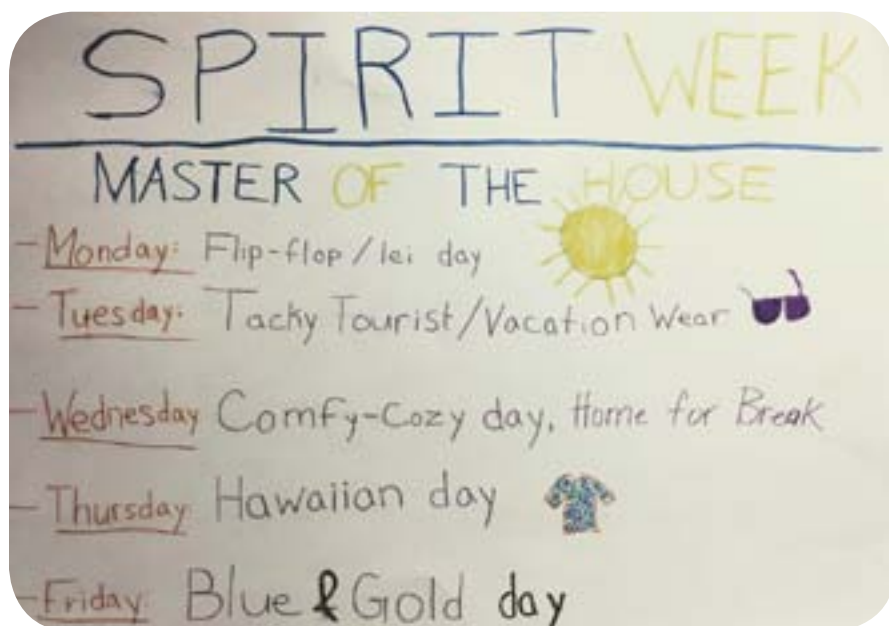 SPIRIT WEEK
MASTER OF THE HOUSE
- Monday: Flip-flop/lei day
- Tuesday: Tacky Tourist/Vacation Wear
- Wednesday Comfy-Cozy day, Home for Break
- Thursday Hawaiian day
- Friday: Blue & Gold day